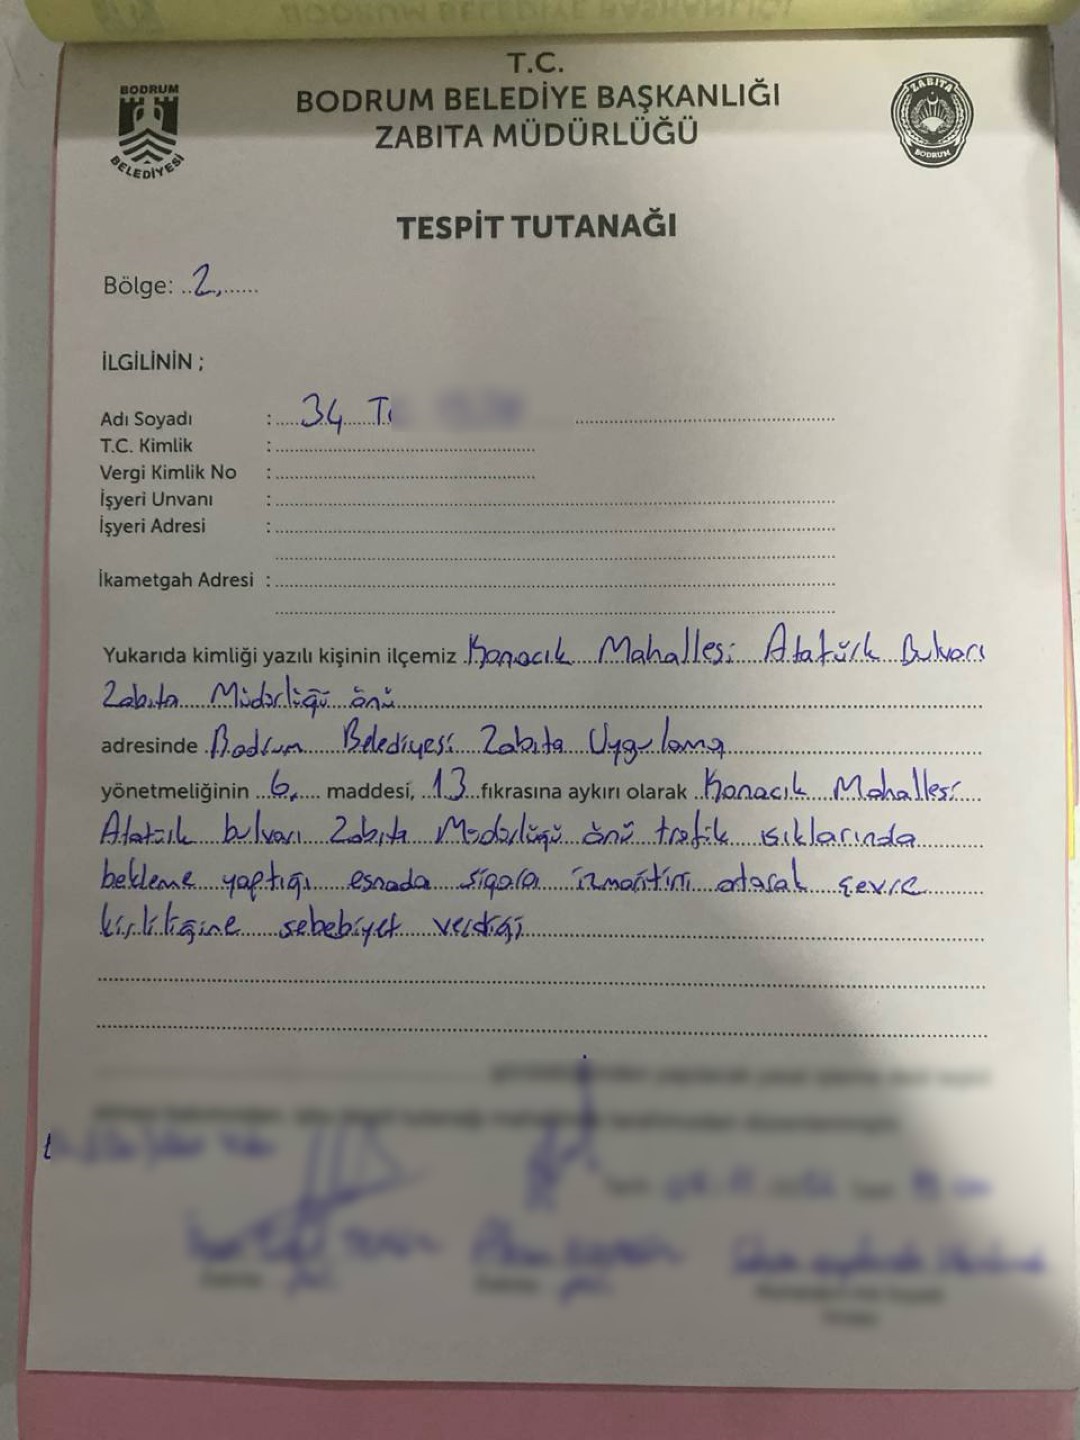 BODRUM BELEDİYE BAŞKANLIĞI
T.C.
BODRUM BELEDİYE BAŞKANLIĞI
ZABITA MÜDÜRLÜĞÜ
BODRUM
BELEDİYESİ
ZABITA
BODRUM
TESPİT TUTANAĞI
Bölge: ..2,......
İLGİLİNİN ;
Adı Soyadı : 34 T
T.C. Kimlik :
Vergi Kimlik No :
İşyeri Unvanı :
İşyeri Adresi :
İkametgah Adresi :
Yukarıda kimliği yazılı kişinin ilçemiz Konacık Mahallesi Atatürk Bulvarı
Zabıta Müdürlüğü önü
adresinde Bodrum Belediyesi Zabıta Uygulama
yönetmeliğinin 6. maddesi, 13 fıkrasına aykırı olarak Konacık Mahallesi
Atatürk bulvarı Zabıta Müdürlüğü önü trafik ışıklarında
bekleme yaptığı esnada sigara izmaritini atarak çevre
kirliliğine sebebiyet verdiği